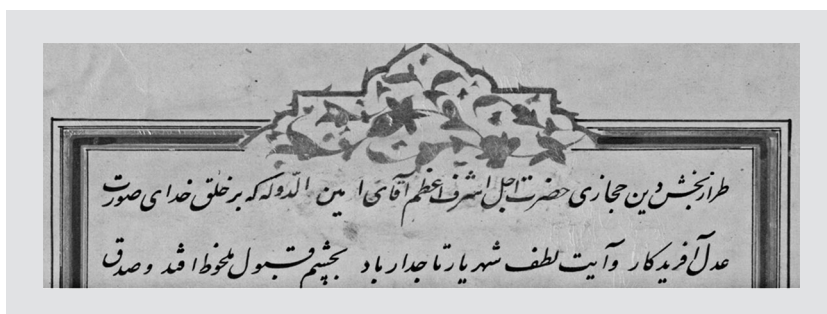 طرازبخش دین حجازی حضرت اجل اشرف اعظم آقای امین الدوله که بر خلق خدای صورت
عدل آفریدکار و آیت لطف شهریار تاجدار باد بچشم قبول ملحوظ افتد و صدق